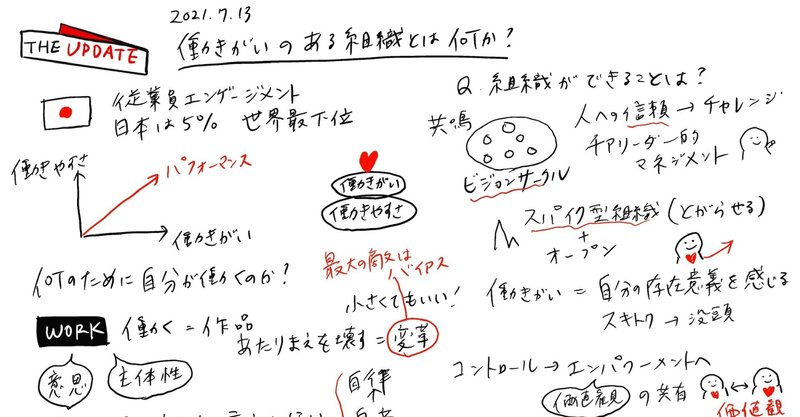 2021.7.13
THE UPDATE
働きがいのある組織とは何か?
従業員エンゲージメント
日本は5% 世界最下位
働きやすさ
パフォーマンス
働きがい
働きがい
働きやすさ
何のために自分が働くのか?
最大の敵は
バイアス
小さくてもいい!
WORK
働く=作品
あたりまえを壊す=変革
意思
主体性
自律
Q.組織ができることは?
共鳴
ビジョンサークル
人への信頼→チャレンジ
チアリーダー的
マネジメント
スパイク型組織(とがらせる)
+
オープン
働きがい=自分の存在意義を感じる
スキトク→没頭
コントロール→エンパワーメントへ
価値観の共有
価値観